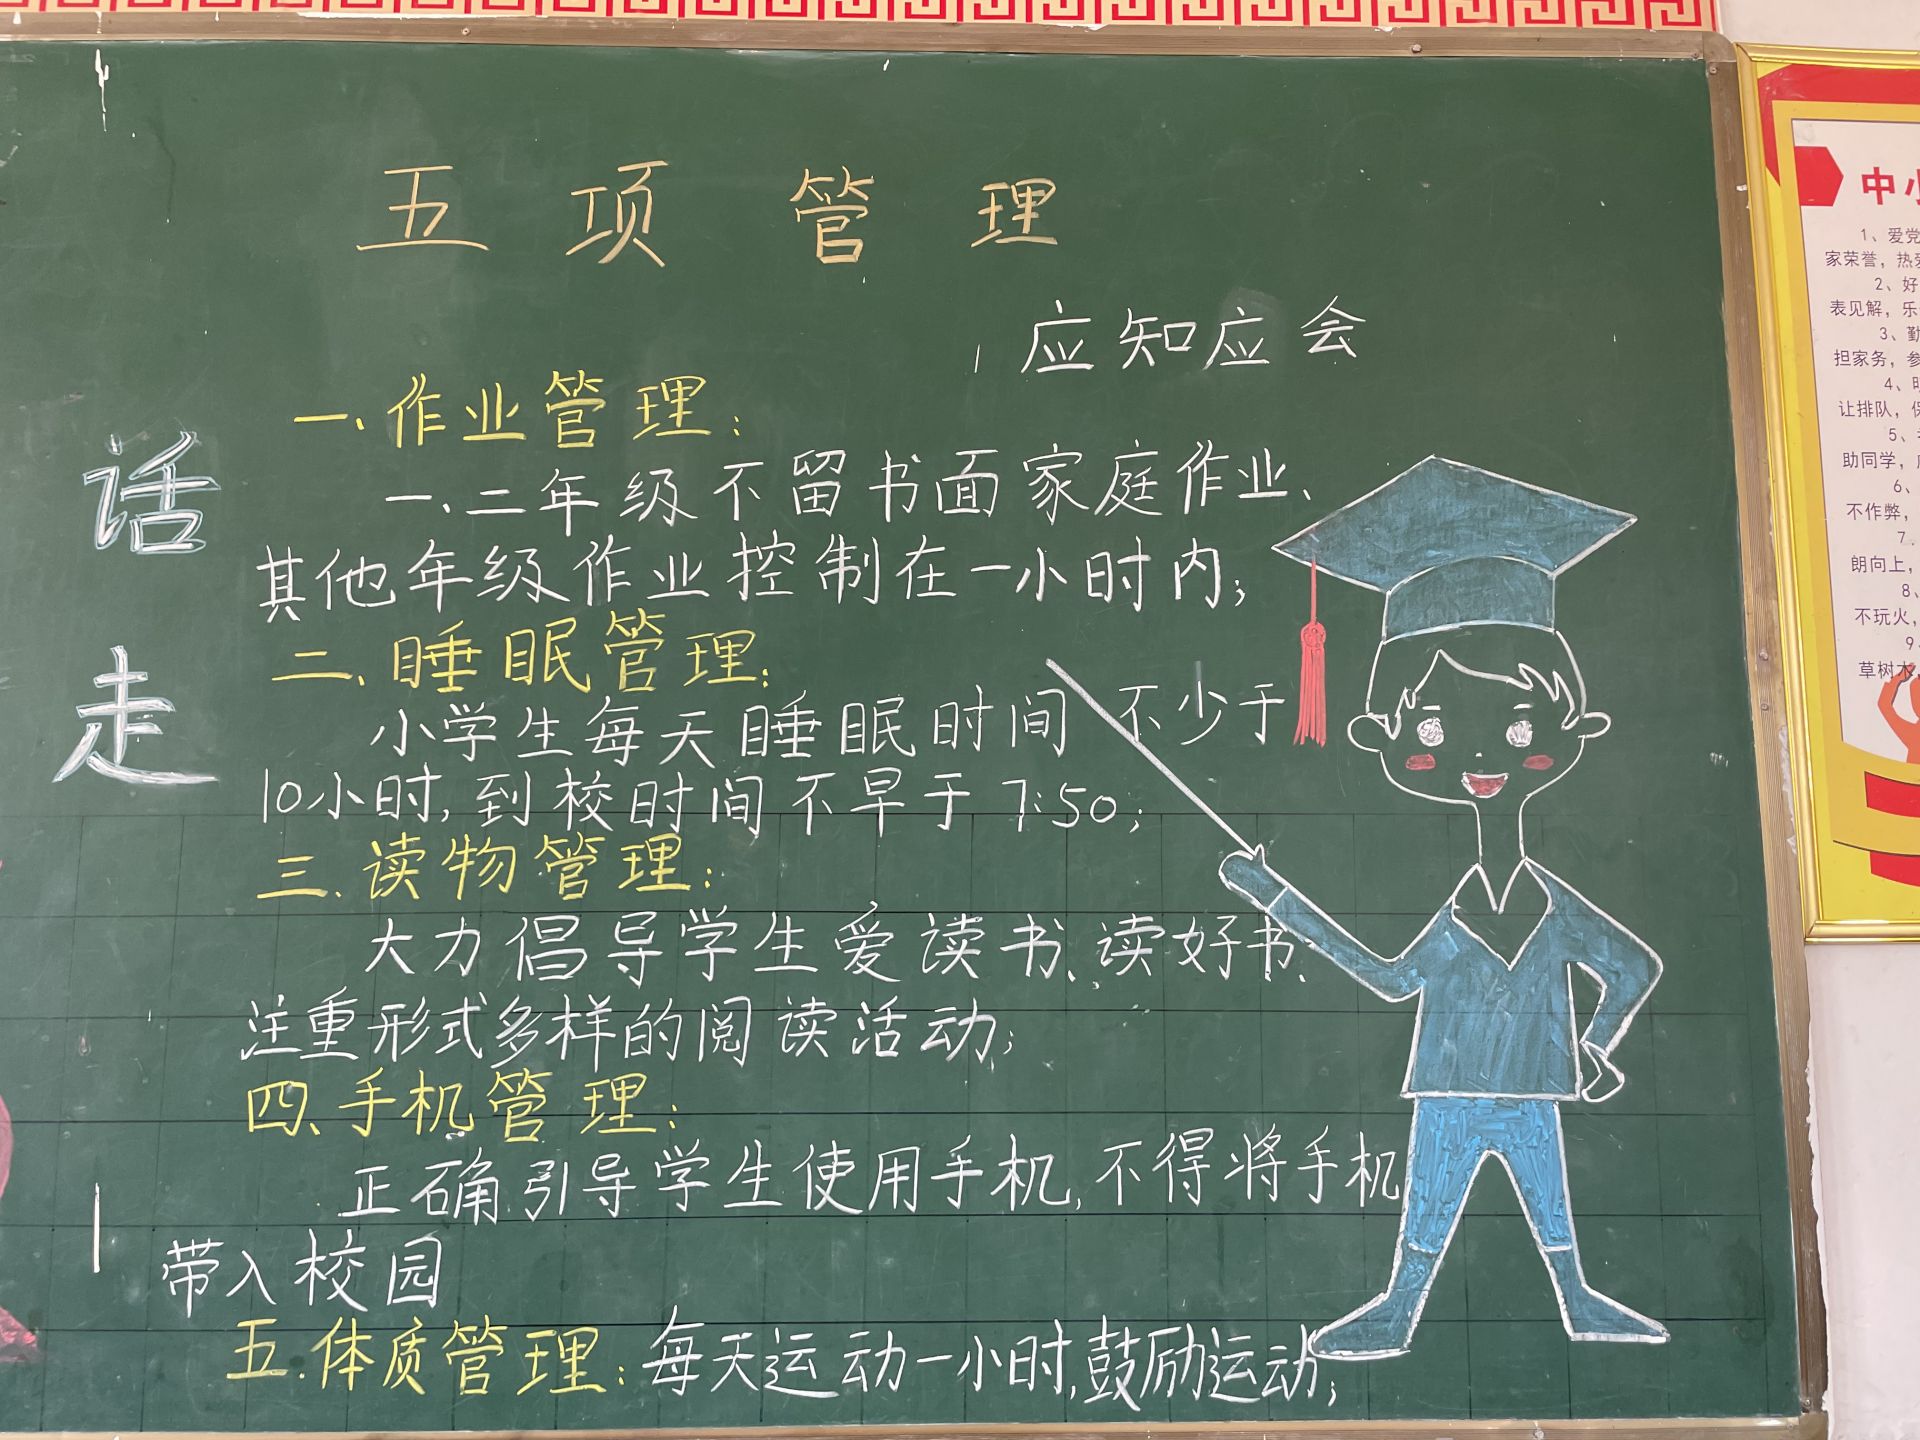 五项管理
应知应会
一、作业管理:
一、二年级不留书面家庭作业、
其他年级作业控制在一小时内;
二、睡眠管理:
小学生每天睡眠时间不少于
10小时,到校时间不早于7:50;
三.读物管理:
大力倡导学生爱读书、读好书、
注重形式多样的阅读活动;
四、手机管理:
正确引导学生使用手机,不得将手机
带入校园
五.体质管理:每天运动一小时,鼓励运动;
话
走
中小
1、爱党
家荣誉,热爱
2、好
表见解,乐
3、勤
担家务,参
4、明
让排队,保
5、
助同学,
6、
不作弊,
7.
朗向上,
8、
不玩火,
9、
草树木,